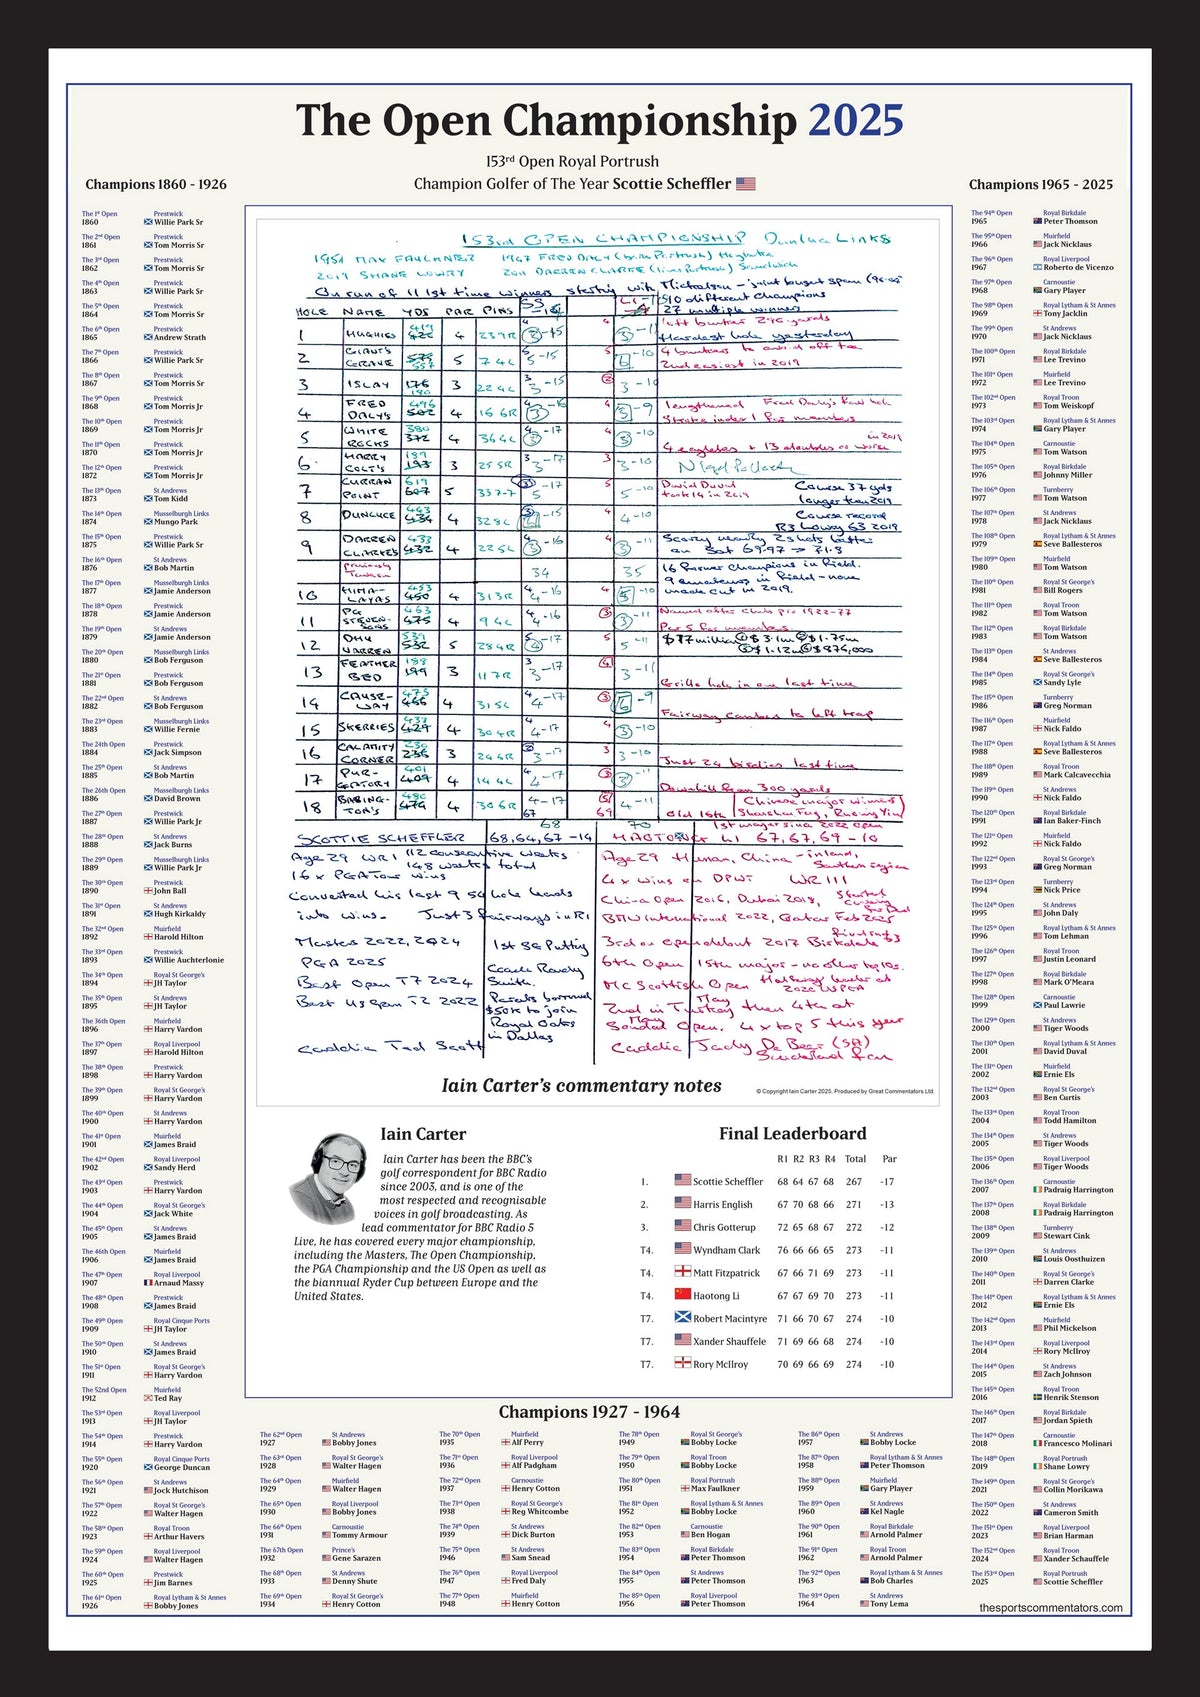 The Open Championship 2025
153rd Open Royal Portrush
Champion Golfer of The Year Scottie Scheffler
Champions 1860 - 1926
The 1st Open Prestwick
1860 Willie Park Sr
The 2nd Open Prestwick
1861 Tom Morris Sr
The 3rd Open Prestwick
1862 Tom Morris Sr
The 4th Open Prestwick
1863 Willie Park Sr
The 5th Open Prestwick
1864 Tom Morris Sr
The 6th Open Prestwick
1865 Andrew Strath
The 7th Open Prestwick
1866 Willie Park Sr
The 8th Open Prestwick
1867 Tom Morris Sr
The 9th Open Prestwick
1868 Tom Morris Jr
The 10th Open Prestwick
1869 Tom Morris Jr
The 11th Open Prestwick
1870 Tom Morris Jr
The 12th Open Prestwick
1872 Tom Morris Jr
The 13th Open St Andrews
1873 Tom Kidd
The 14th Open Musselburgh Links
1874 Mungo Park
The 15th Open Prestwick
1875 Willie Park Sr
The 16th Open St Andrews
1876 Bob Martin
The 17th Open Musselburgh Links
1877 Jamie Anderson
The 18th Open Prestwick
1878 Jamie Anderson
The 19th Open St Andrews
1879 Jamie Anderson
The 20th Open Musselburgh Links
1880 Bob Ferguson
The 21st Open Prestwick
1881 Bob Ferguson
The 22nd Open St Andrews
1882 Bob Ferguson
The 23rd Open Musselburgh Links
1883 Willie Fernie
The 24th Open Prestwick
1884 Jack Simpson
The 25th Open St Andrews
1885 Bob Martin
The 26th Open Musselburgh Links
1886 David Brown
The 27th Open Prestwick
1887 Willie Park Jr
The 28th Open St Andrews
1888 Jack Burns
The 29th Open Musselburgh Links
1889 Willie Park Jr
The 30th Open Prestwick
1890 John Ball
The 31st Open St Andrews
1891 Hugh Kirkaldy
The 32nd Open Muirfield
1892 Harold Hilton
The 33rd Open Prestwick
1893 Willie Auchterlonie
The 34th Open Royal St George's
1894 JH Taylor
The 35th Open St Andrews
1895 JH Taylor
The 36th Open Muirfield
1896 Harry Vardon
The 37th Open Royal Liverpool
1897 Harold Hilton
The 38th Open Prestwick
1898 Harry Vardon
The 39th Open Royal St George's
1899 Harry Vardon
The 40th Open St Andrews
1900 Harry Vardon
The 41st Open Muirfield
1901 James Braid
The 42nd Open Royal Liverpool
1902 Sandy Herd
The 43rd Open Prestwick
1903 Harry Vardon
The 44th Open Royal St George's
1904 Jack White
The 45th Open St Andrews
1905 James Braid
The 46th Open Muirfield
1906 James Braid
The 47th Open Royal Liverpool
1907 Arnaud Massy
The 48th Open Prestwick
1908 James Braid
The 49th Open Royal Cinque Ports
1909 JH Taylor
The 50th Open St Andrews
1910 James Braid
The 51st Open Royal St George's
1911 Harry Vardon
The 52nd Open Muirfield
1912 Ted Ray
The 53rd Open Royal Liverpool
1913 JH Taylor
The 54th Open Prestwick
1914 Harry Vardon
The 55th Open Royal Cinque Ports
1920 George Duncan
The 56th Open St Andrews
1921 Jock Hutchison
The 57th Open Royal St George's
1922 Walter Hagen
The 58th Open Royal Troon
1923 Arthur Havers
The 59th Open Royal Liverpool
1924 Walter Hagen
The 60th Open Prestwick
1925 Jim Barnes
The 61st Open Royal Lytham & St Annes
1926 Bobby Jones
153rd OPEN CHAMPIONSHIP Dunluce LINKS
1951 MAX FAULKNER 1947 FRED DALY (born Portrush) Hoylake
2019 SHANE LOWRY 2011 DARREN CLARKE (lives Portrush) Sandwich
On run of 11 1st time winners starting with Mickelson - joint longest span
10 different champions
27 multiple winners
HOLE NAME YDS PAR PINS SS
1 HUGHIES 4 239R 3 -15 4 3 -11 left bunker 296 yards
Hardest hole yesterday
2 GIANT'S GRAVE 5 74L 5 -15 4 bunkers to avoid off tee
2nd easiest in 2019
3 ISLAY 176 3 224L 3 -15 3 -10
4 FRED DALY'S 496 502 4 166R 3 -16 3 -9 lengthened Fred Daly's fav hole
Stroke index 1 for members
5 WHITE ROCKS 380 372 4 364L 3 -17 3 -10 in 2019
4 eagles + 13 doubles or worse
6 HARRY COLT'S 3 255R 3 -17 3 -10
7 CURRAN POINT 619 607 5 5 -17 5 -10 David Duval
took 14 in 2019
Course 37 yds
longer than 2019
8 DUNLUCE 434 4 328L -15 4 -10 Course record
R3 Lowry 63 2019
9 DARREN CLARKE'S 433 432 4 225L 3 -16 3 -11 Scoring nearly 2 shots better
on Sat 69.97 → 71.8
34 35 16 former champions in field.
9 amateurs in field - none
made cut in 2019.
10 HIMALAYAS 450 4 313R 4 -16 5 -10
11 PG STEVENSONS 463 475 4 94L 4 -16 3 -11 Named after club pro 1922-77
Par 5 for members.
12 DHU VARREN 532 5 284R 4 -17 5 -11 $17 million $3.1m $1.75m
$1.12m $876,000
13 FEATHER BED 199 3 117R 3 -17 3 -11
Grillo hole in one last time
14 CAUSEWAY 473 466 4 315L 4 -17 6 -9
Fairway cambers to left trap
15 SKERRIES 4 304R 4 -17 3 -10
16 CALAMITY CORNER 236 3 246R 3 -17 3 -10
Just 24 birdies last time
17 PURGATORY 401 409 4 144L 4 -17 3 -11
Downhill from 300 yards
18 BABINGTON'S 474 4 306R 4 -17 4 -11 Old 16th
Chinese major winners
Shanshan Feng, Ruoning Yin
68 70 1st major since 2022 Open
SCOTTIE SCHEFFLER 68, 64, 67 -14
Age 29 WR1 112 consecutive weeks
148 weeks total
16 x PGA Tour wins
Converted his last 9 54 hole leads
into wins. - Just 3 fairways in R1
Masters 2022, 2024
PGA 2025
Best Open T7 2024
Best US Open T2 2022
Caddie Ted Scott
1st SG Putting
Coach Randy
Smith.
Parents borrowed
$50k to join
Royal Oaks
in Dallas
HAOTONG LI 67, 67, 69 - 10
Age 29 Hunan, China - inland,
Southern region
4 x wins on DPWT WR 111
China Open 2016, Dubai 2018,
BMW International 2022, Qatar Feb 2025
3rd on Open debut 2017 Birkdale 63
6th Open 15th major - no other top 10s.
MC Scottish Open Halfway leader at
2020 USPGA
2nd in Turkey May then 4th at
Soudal Open. May 4 x top 5 this year
Caddie Jady De Beer (SA)
Sunderland fan
Iain Carter's commentary notes
© Copyright Iain Carter 2025. Produced by Great Commentators Ltd.
Iain Carter
Iain Carter has been the BBC's
golf correspondent for BBC Radio
since 2003, and is one of the
most respected and recognisable
voices in golf broadcasting. As
lead commentator for BBC Radio 5
Live, he has covered every major championship,
including the Masters, The Open Championship,
the PGA Championship and the US Open as well as
the biannual Ryder Cup between Europe and the
United States.
Final Leaderboard
R1 R2 R3 R4 Total Par
1. Scottie Scheffler 68 64 67 68 267 -17
2. Harris English 67 70 68 66 271 -13
3. Chris Gotterup 72 65 68 67 272 -12
T4. Wyndham Clark 76 66 66 65 273 -11
T4. Matt Fitzpatrick 67 66 71 69 273 -11
T4. Haotong Li 67 67 69 70 273 -11
T7. Robert Macintyre 71 66 70 67 274 -10
T7. Xander Shauffele 71 69 66 68 274 -10
T7. Rory McIlroy 70 69 66 69 274 -10
Champions 1927 - 1964
The 62nd Open St Andrews
1927 Bobby Jones
The 63rd Open Royal St George's
1928 Walter Hagen
The 64th Open Muirfield
1929 Walter Hagen
The 65th Open Royal Liverpool
1930 Bobby Jones
The 66th Open Carnoustie
1931 Tommy Armour
The 67th Open Prince's
1932 Gene Sarazen
The 68th Open St Andrews
1933 Denny Shute
The 69th Open Royal St George's
1934 Henry Cotton
The 70th Open Muirfield
1935 Alf Perry
The 71st Open Royal Liverpool
1936 Alf Padgham
The 72nd Open Carnoustie
1937 Henry Cotton
The 73rd Open Royal St George's
1938 Reg Whitcombe
The 74th Open St Andrews
1939 Dick Burton
The 75th Open St Andrews
1946 Sam Snead
The 76th Open Royal Liverpool
1947 Fred Daly
The 77th Open Muirfield
1948 Henry Cotton
The 78th Open Royal St George's
1949 Bobby Locke
The 79th Open Royal Troon
1950 Bobby Locke
The 80th Open Royal Portrush
1951 Max Faulkner
The 81st Open Royal Lytham & St Annes
1952 Bobby Locke
The 82nd Open Carnoustie
1953 Ben Hogan
The 83rd Open Royal Birkdale
1954 Peter Thomson
The 84th Open St Andrews
1955 Peter Thomson
The 85th Open Royal Liverpool
1956 Peter Thomson
The 86th Open St Andrews
1957 Bobby Locke
The 87th Open Royal Lytham & St Annes
1958 Peter Thomson
The 88th Open Muirfield
1959 Gary Player
The 89th Open St Andrews
1960 Kel Nagle
The 90th Open Royal Birkdale
1961 Arnold Palmer
The 91st Open Royal Troon
1962 Arnold Palmer
The 92nd Open Royal Lytham & St Annes
1963 Bob Charles
The 93rd Open St Andrews
1964 Tony Lema
Champions 1965 - 2025
The 94th Open Royal Birkdale
1965 Peter Thomson
The 95th Open Muirfield
1966 Jack Nicklaus
The 96th Open Royal Liverpool
1967 Roberto de Vicenzo
The 97th Open Carnoustie
1968 Gary Player
The 98th Open Royal Lytham & St Annes
1969 Tony Jacklin
The 99th Open St Andrews
1970 Jack Nicklaus
The 100th Open Royal Birkdale
1971 Lee Trevino
The 101st Open Muirfield
1972 Lee Trevino
The 102nd Open Royal Troon
1973 Tom Weiskopf
The 103rd Open Royal Lytham & St Annes
1974 Gary Player
The 104th Open Carnoustie
1975 Tom Watson
The 105th Open Royal Birkdale
1976 Johnny Miller
The 106th Open Turnberry
1977 Tom Watson
The 107th Open St Andrews
1978 Jack Nicklaus
The 108th Open Royal Lytham & St Annes
1979 Seve Ballesteros
The 109th Open Muirfield
1980 Tom Watson
The 110th Open Royal St George's
1981 Bill Rogers
The 111th Open Royal Troon
1982 Tom Watson
The 112th Open Royal Birkdale
1983 Tom Watson
The 113th Open St Andrews
1984 Seve Ballesteros
The 114th Open Royal St George's
1985 Sandy Lyle
The 115th Open Turnberry
1986 Greg Norman
The 116th Open Muirfield
1987 Nick Faldo
The 117th Open Royal Lytham & St Annes
1988 Seve Ballesteros
The 118th Open Royal Troon
1989 Mark Calcavecchia
The 119th Open St Andrews
1990 Nick Faldo
The 120th Open Royal Birkdale
1991 Ian Baker-Finch
The 121st Open Muirfield
1992 Nick Faldo
The 122nd Open Royal St George's
1993 Greg Norman
The 123rd Open Turnberry
1994 Nick Price
The 124th Open St Andrews
1995 John Daly
The 125th Open Royal Lytham & St Annes
1996 Tom Lehman
The 126th Open Royal Troon
1997 Justin Leonard
The 127th Open Royal Birkdale
1998 Mark O'Meara
The 128th Open Carnoustie
1999 Paul Lawrie
The 129th Open St Andrews
2000 Tiger Woods
The 130th Open Royal Lytham & St Annes
2001 David Duval
The 131st Open Muirfield
2002 Ernie Els
The 132nd Open Royal St George's
2003 Ben Curtis
The 133rd Open Royal Troon
2004 Todd Hamilton
The 134th Open St Andrews
2005 Tiger Woods
The 135th Open Royal Liverpool
2006 Tiger Woods
The 136th Open Carnoustie
2007 Padraig Harrington
The 137th Open Royal Birkdale
2008 Padraig Harrington
The 138th Open Turnberry
2009 Stewart Cink
The 139th Open St Andrews
2010 Louis Oosthuizen
The 140th Open Royal St George's
2011 Darren Clarke
The 141st Open Royal Lytham & St Annes
2012 Ernie Els
The 142nd Open Muirfield
2013 Phil Mickelson
The 143rd Open Royal Liverpool
2014 Rory McIlroy
The 144th Open St Andrews
2015 Zach Johnson
The 145th Open Royal Troon
2016 Henrik Stenson
The 146th Open Royal Birkdale
2017 Jordan Spieth
The 147th Open Carnoustie
2018 Francesco Molinari
The 148th Open Royal Portrush
2019 Shane Lowry
The 149th Open Royal St George's
2021 Collin Morikawa
The 150th Open St Andrews
2022 Cameron Smith
The 151st Open Royal Liverpool
2023 Brian Harman
The 152nd Open Royal Troon
2024 Xander Schauffele
The 153rd Open Royal Portrush
2025 Scottie Scheffler
thesportscommentators.com